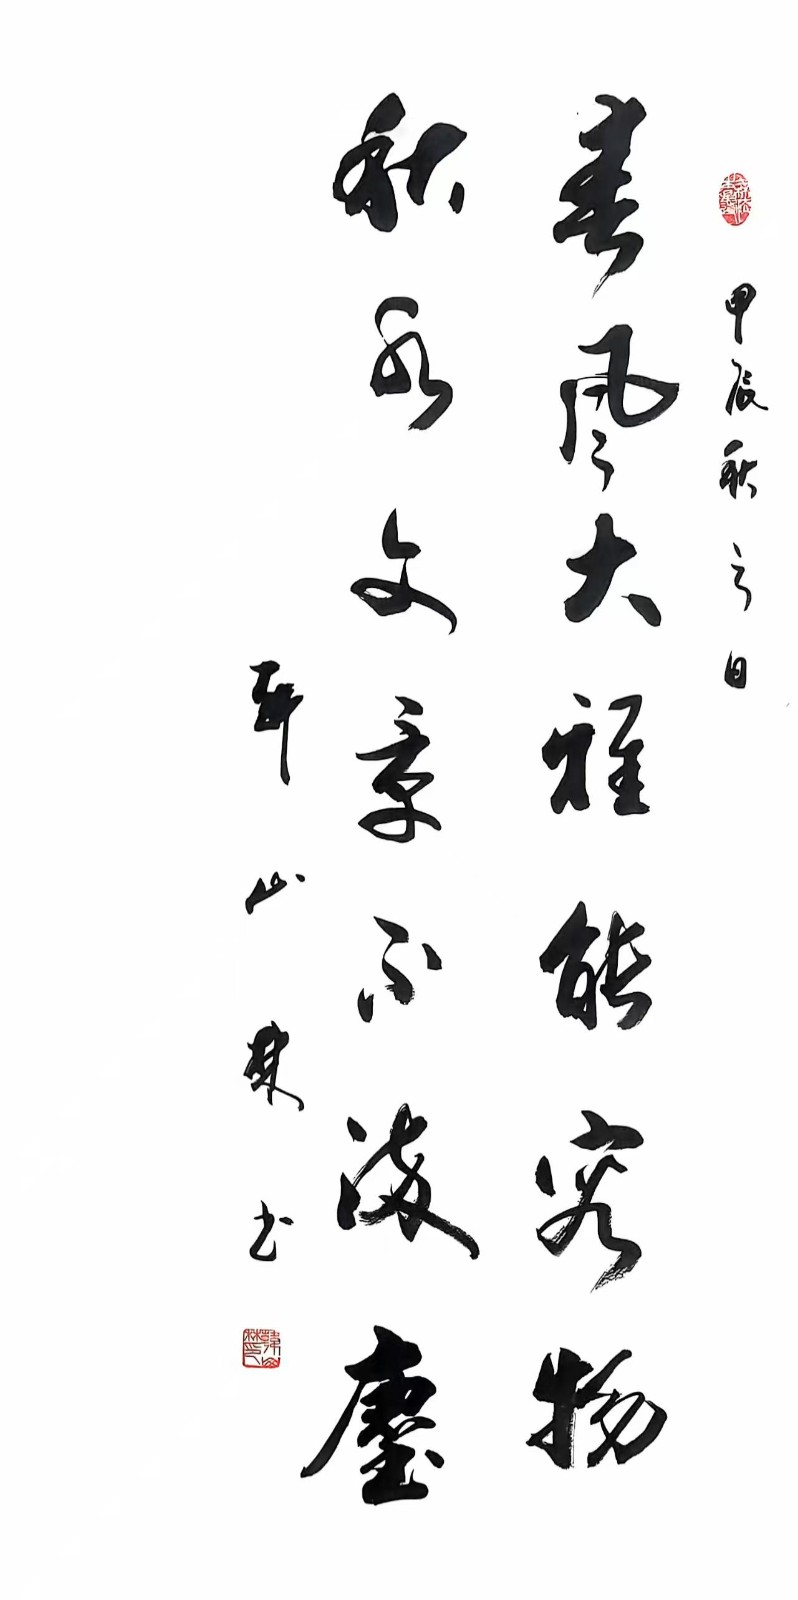 甲辰秋之日
春風大雅能容物
秋水文章不染塵
韓山林书